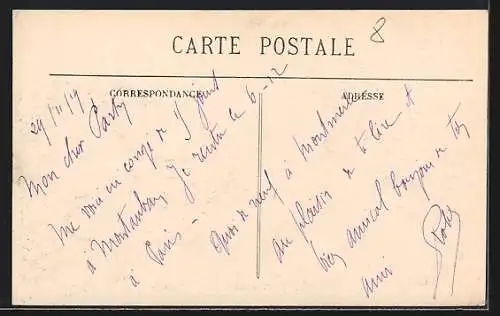 8
CARTE POSTALE
CORRESPONDANCE
ADRESSE
29/11/19
Mon cher
me voici en congé de 8 jours
à Montauban Je rentre le 6-12
à Paris -
Quoi de neuf à
au plaisir de te lire et
bien amical bonjour de ton
ami